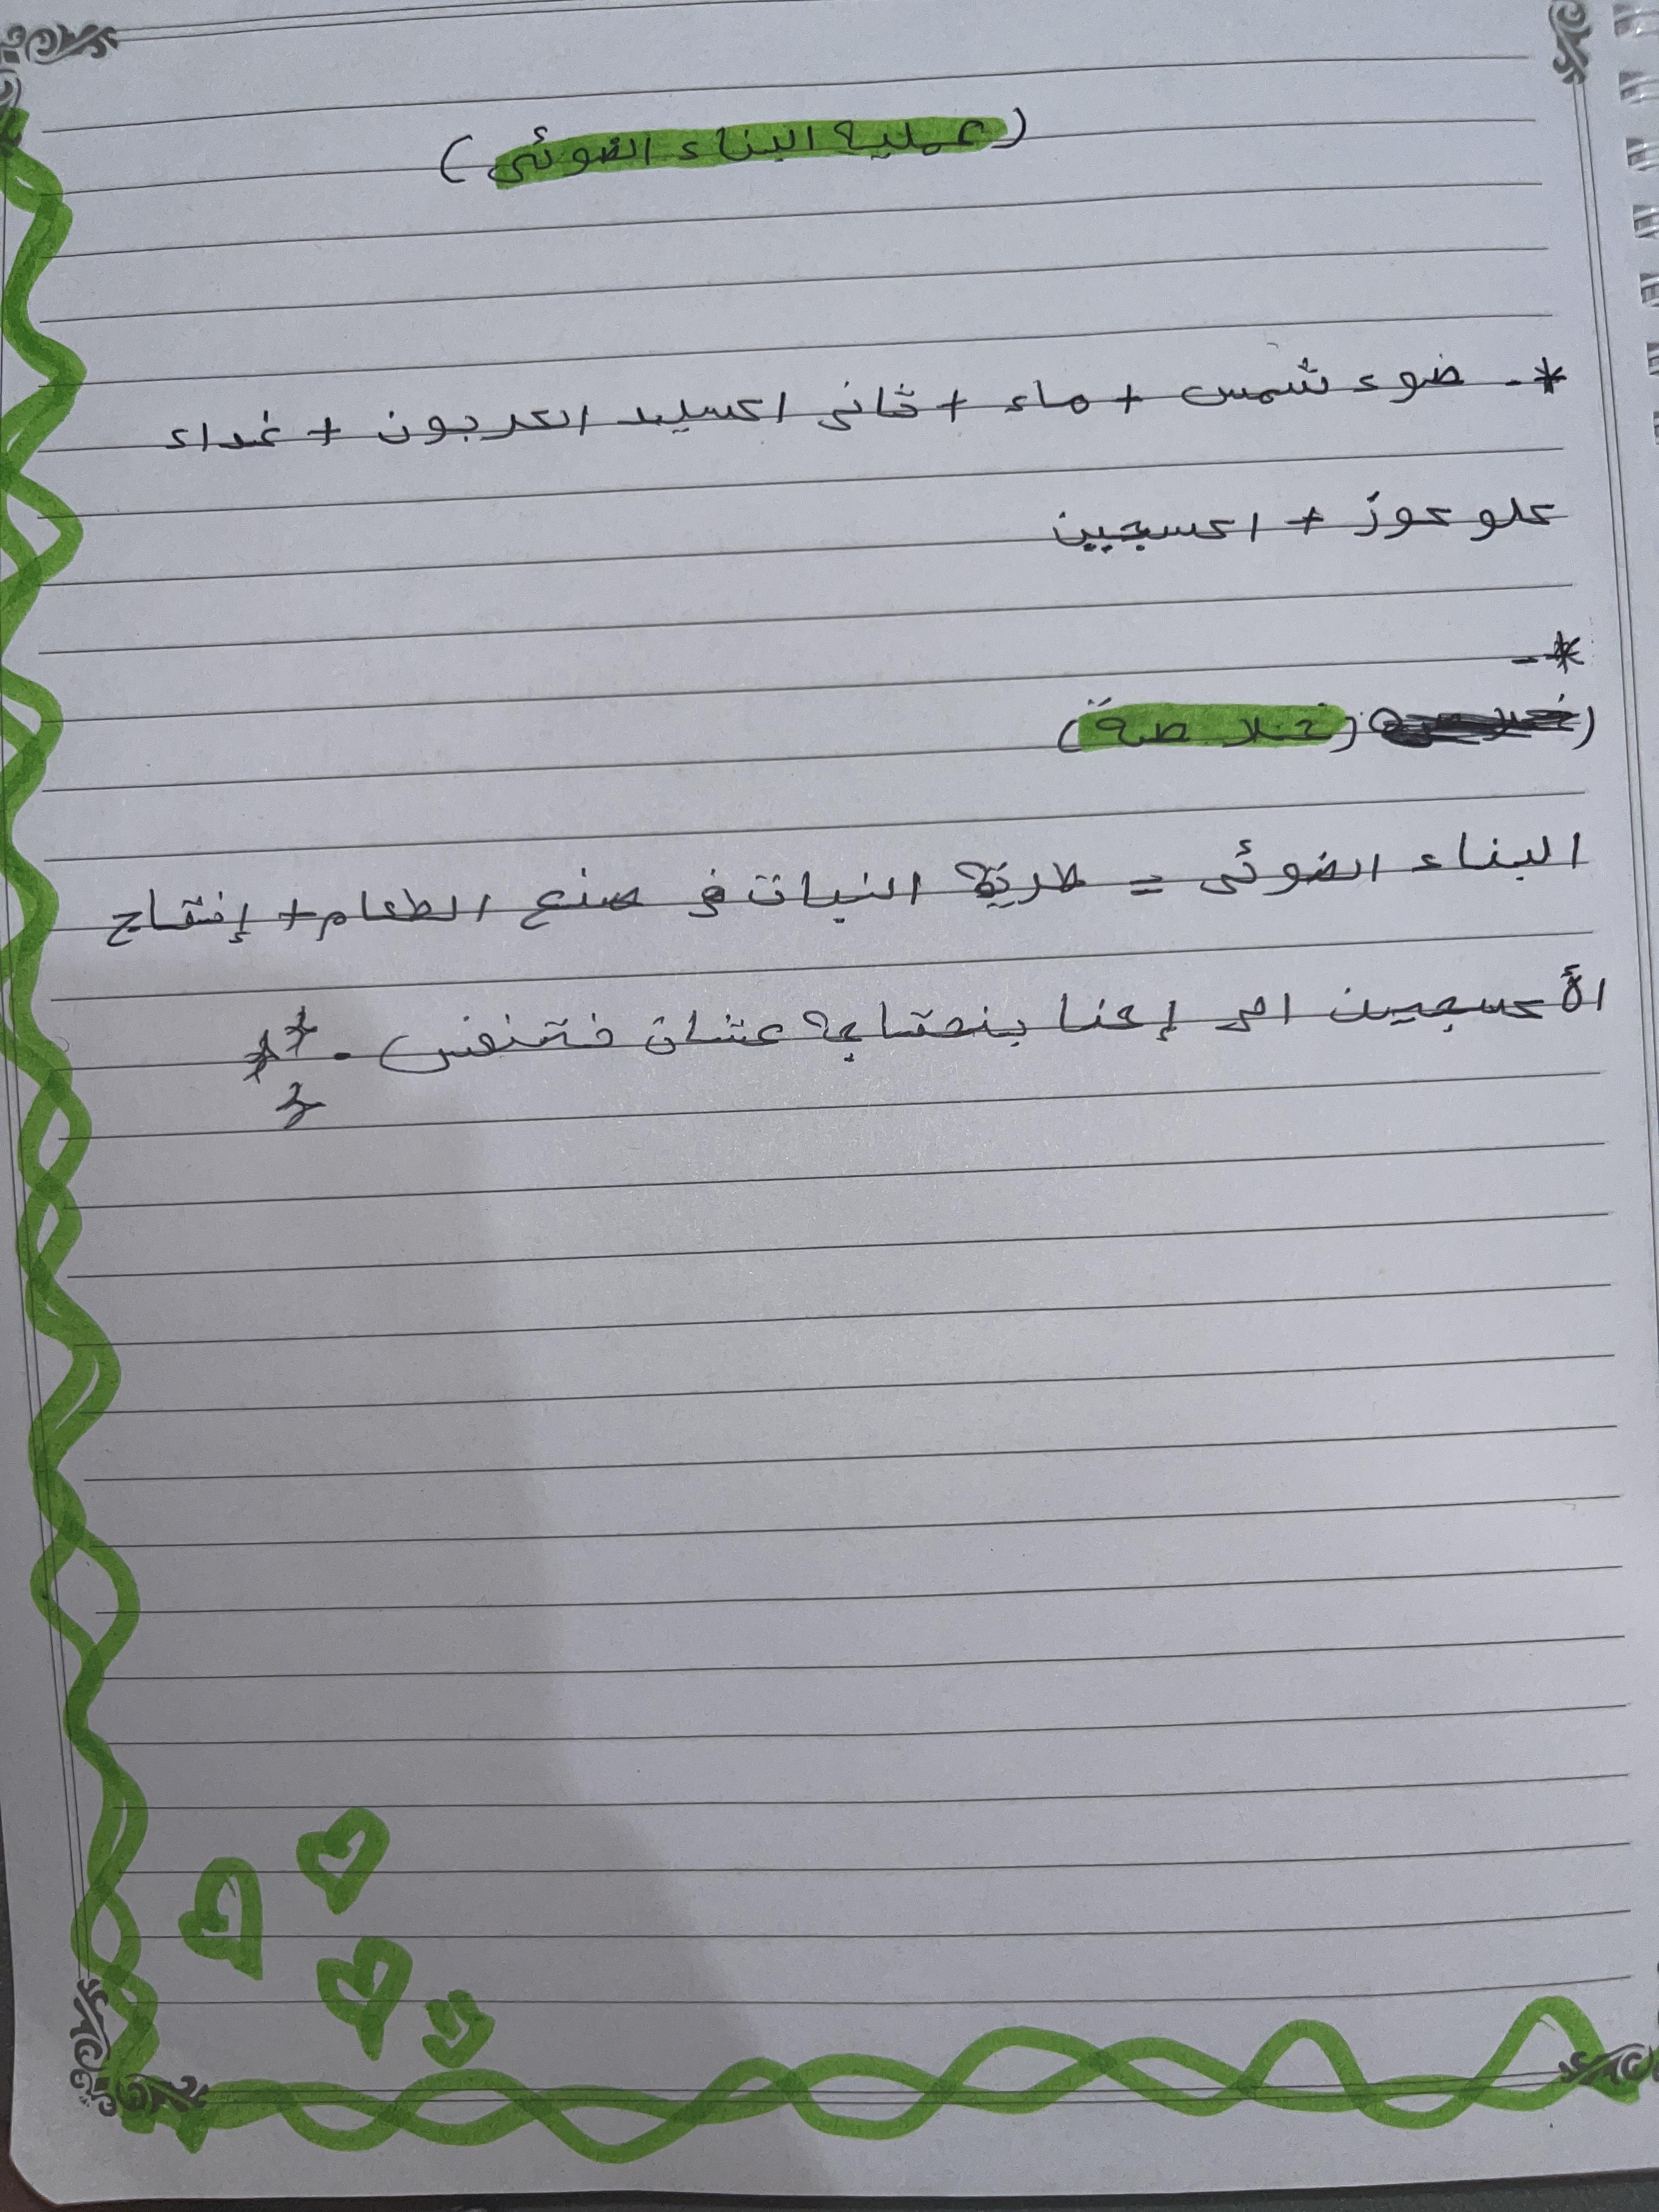 (عملية البناء الضوئى)
*- ضوء شمس + ماء + ثانى اكسيد الكربون + غداء
كلوكوز + اكسجيين
*-
(خلاصة)
البناء الضوئى = طريقة النبات فى صنع الطعام + إنتاج
الأكسجين الى إحنا بنحتاجه عشان نتنفس.